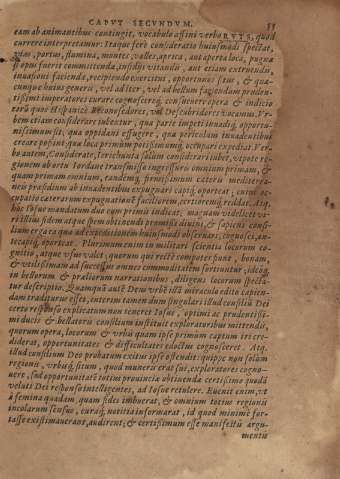 CAPVT SECVNDVM. 55
eam ab animantibus contingit, vocabulo affini verbo RVTS, quod
currere interpretamur. Itaque fere consideratio huiusmodi spectat,
vias, portus, flumina, montes, valles, aprica, aut aperta loca, pugnæ
si opus fuerit committendæ, insidijs vitandis, aut etiam extruendis,
inuasioni faciendæ, recipiendo exercitui, opportunus situs, & quæ-
cunque huius generis, vel ad iter, vel ad bellum faciendum pruden-
tissimi imperatores curare cognoscereq́; consueuere opera & indicio
eorū quos Hispanicè vel descubridores vocamus. Ver-
bem etiam considerare iubentur, qua parte impeti inuadiq́; opporto-
nissimum sit, qua oppidani effugere, qua periculum inuadentibus
creare possint, quæ loca primùm potissimumq́; occupari expediat. Ver-
bo autem, Considerate, Ierichuntæ solum considerari iubet, vtpote re-
gionem ab ortu Iordane transmisso ingressuro omnium primam, &
quam primam omnium, tandemq́; firmissimum cæteris mediterra-
neis præsidium ab inuadentibus expugnari capiq́; oporteat; cum oc-
cupatio cæterarum expugnationē facilitorem, certioremq́; reddat. Atq́;
hîc Iosue mandatum dux cum primis indicat, magnam videlicet vi-
ri illius fidem atque spem obtinendi promissis diuini, & sapiens consi-
lium erga ea quæ ad expeditionem huiusmodi obseruari, cognosci, an-
tecapiq́; oporteat. Plurimum enim in militari scientia locorum co-
gnitio, atque vsus valet, quorum quæ rectè componi sunt, bonam,
& vtilissimam ad successus omnes commoditatem sortiuntur; ideoq́;
in bellorum & præliorum narrationibus, diligens locorum specta-
tur descriptio. Quamquā autē Dem vrbē illā miraculo edito capien-
dam traditurus esset, interim tamen dum singulari illud consiliū Dei
certo responso explicatum non teneret Iosue, optimi ac prudentissi-
mi ducis & bellatoris consilium instituit exploratoribus mittendis,
quorum opera, locorum & vrbis quam ipse primùm captum iri cre-
diderat, opportunitates & difficultates edoctus cognosceret. Atq́;
illud consilium Deo probatum exitus ipse ostendit: quippe non solùm
regionis, vrbisq́; situm, quod muneris erat sui, exploratores cogno-
uere, sed opportunitatē totius prouinciæ obtinendæ certissimo quodā
veluti Dei responso intelligentes, ad Iosue retulere. Euenit enim, vt
à femina quadam, quam fides imbuerat, & omnium totius regionis
incolarum sensus, curaq́; notitia informarat, id quod minimè for-
tasse existimauerant, audirent; & certissimum esse manifestū argu-
mentis